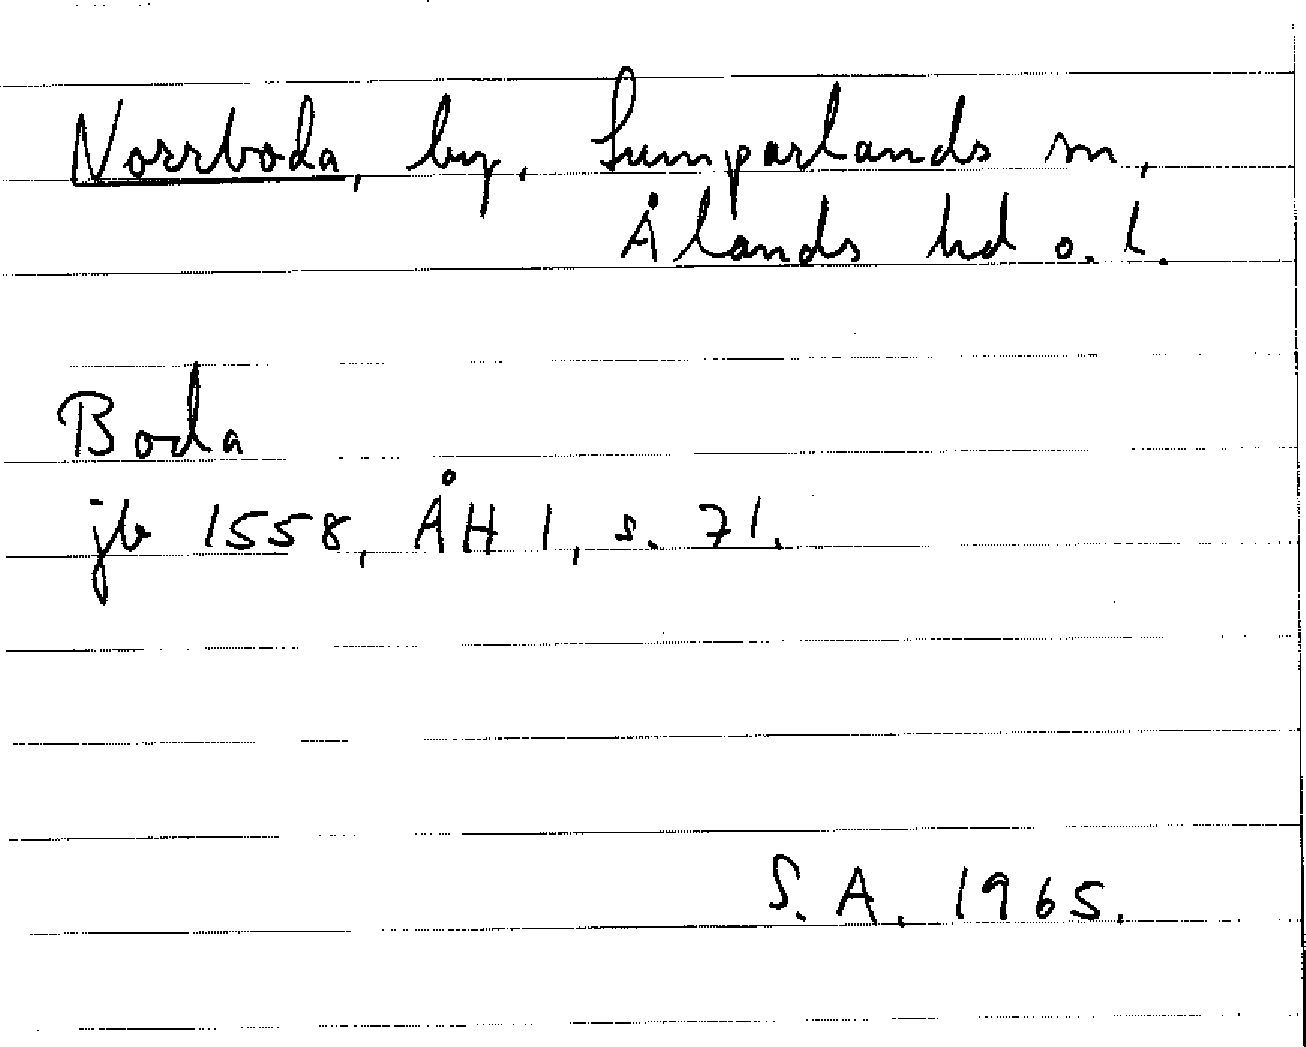 Norrboda, by, Lumparlands sn,
Ålands hd o. l.
Boda
jb 1558, ÅH 1, s. 71.
S. A. 1965.